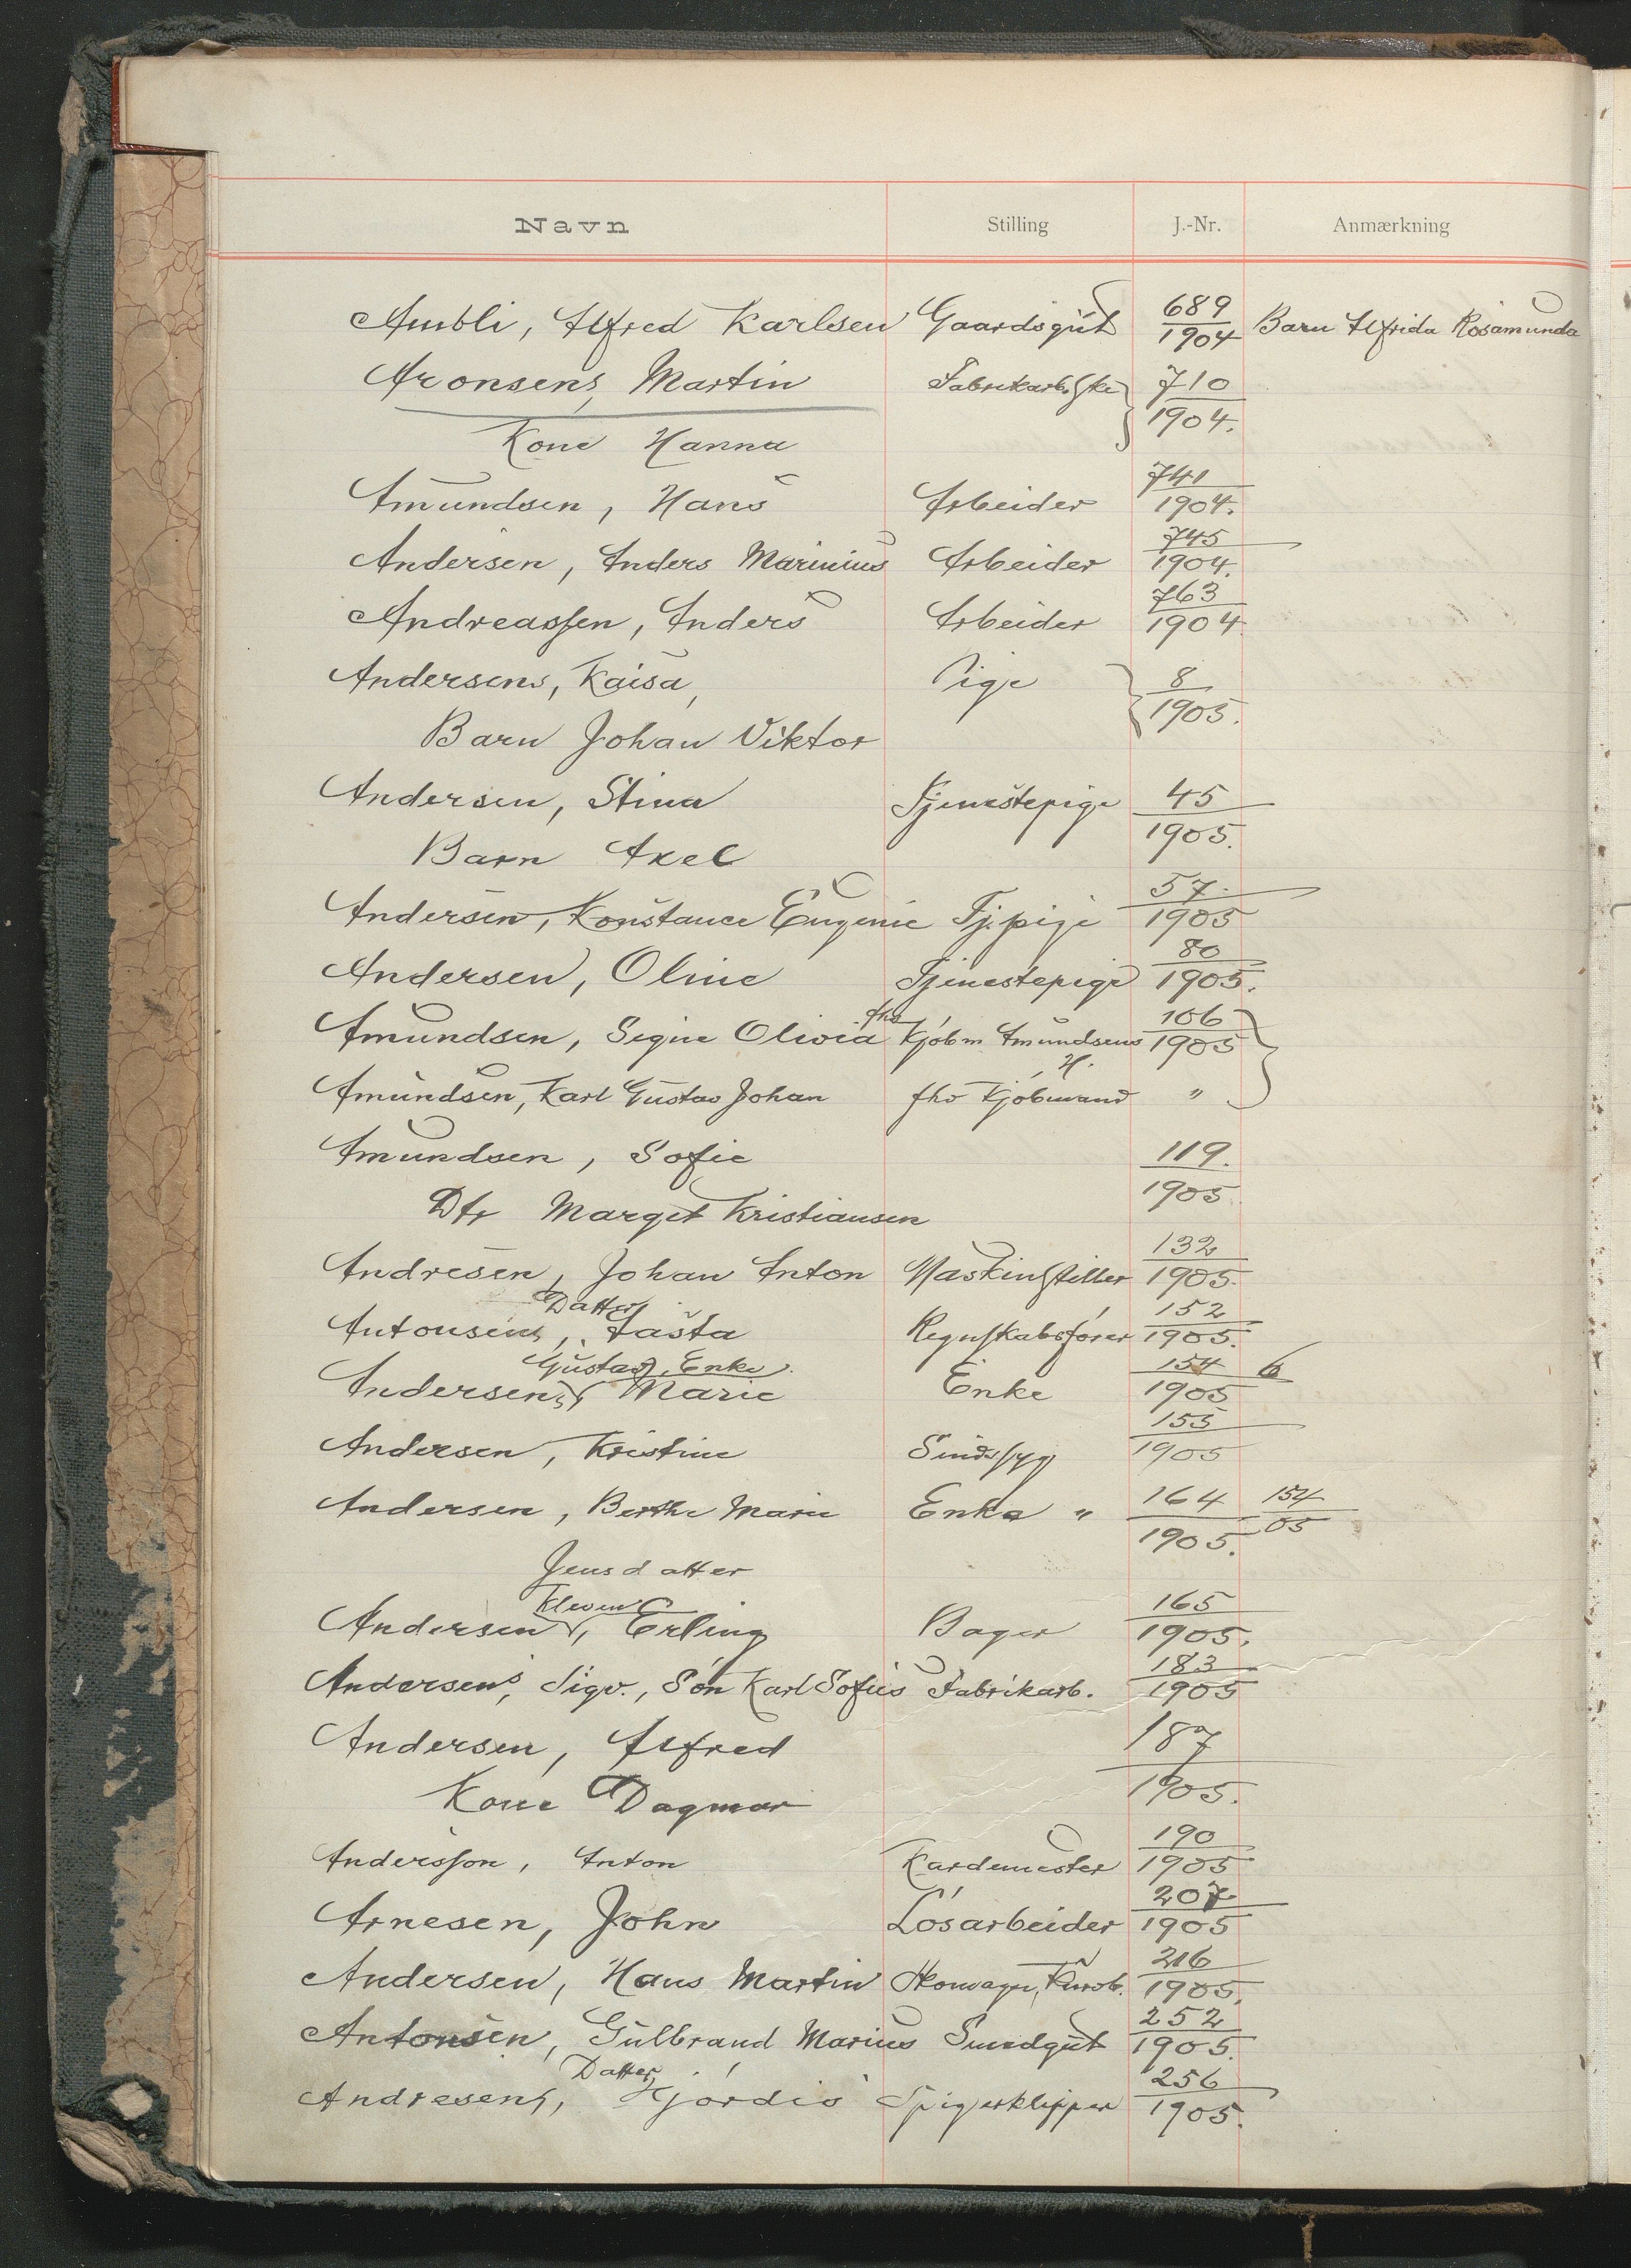 Navn Stilling J.-Nr. Anmærkning
Ambli, Alfred Karlsen Gaardsgut 689/1904 Barn Alfrida Rosamunda
Aronsens, Martin Fabrikarb.ske 710/1904.
Kone Hanna
Amundsen, Hans Arbeider 741/1904.
Andersen, Anders Marinius Arbeider 745/1904.
Andreassen, Anders Arbeider 763/1904
Andersens, Kaisa, Pige 8/1905.
Barn Johan Viktor
Andersen, Stina Tjenestepige 45/1905.
Barn Axel
Andersen, Konstance Eugenie Tj.pige 57./1905
Andersen, Oline Tjenestepige 80/1905.
Amundsen, Signe Olivia fhv Kjøbm Amundsens 106/1905
Amundsen, Karl Gustav Johan fhv Kjøbmand H. "
Amundsen, Sofie 119./1905
Dtr Margit Kristiansen
Andresen, Johan Anton Maskinstiller 132/1905.
Antonsens, Datter Aasta Regnskabsfører 152/1905.
Andersens, Gustav Enke Marie Enke 154/1905 6
Andersen, Kristine Sindssyg 155/1905
Andersen, Berthe Marie Enke " 164/1905. 154/05
Jensdatter
Andersen, Kleven Erling Bager 165/1905.
Andersens, Sigv., Søn Karl Sofus Fabrikarb. 183/1905
Andersen, Alfred 187/1905.
Kone Dagmar
Andersson, Anton Kardemester 190/1905
Arnesen, John Løsarbeider 207/1905
Andersen, Hans Martin 216/1905.
Antonsen, Gulbrand Marius Smedgut 252/1905.
Andresens, Datter Hjørdis Spigerklipper 256/1905.